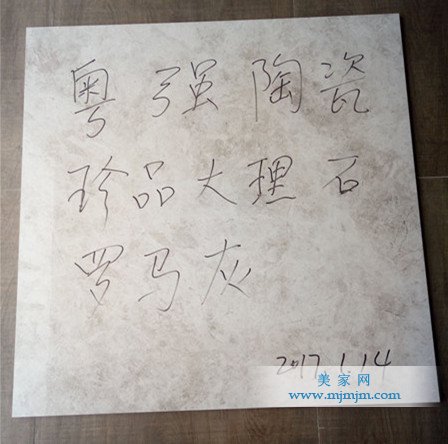 粤强陶瓷
珍品大理石
罗马灰
2017.1.14
美家网
www.mjmjm.com